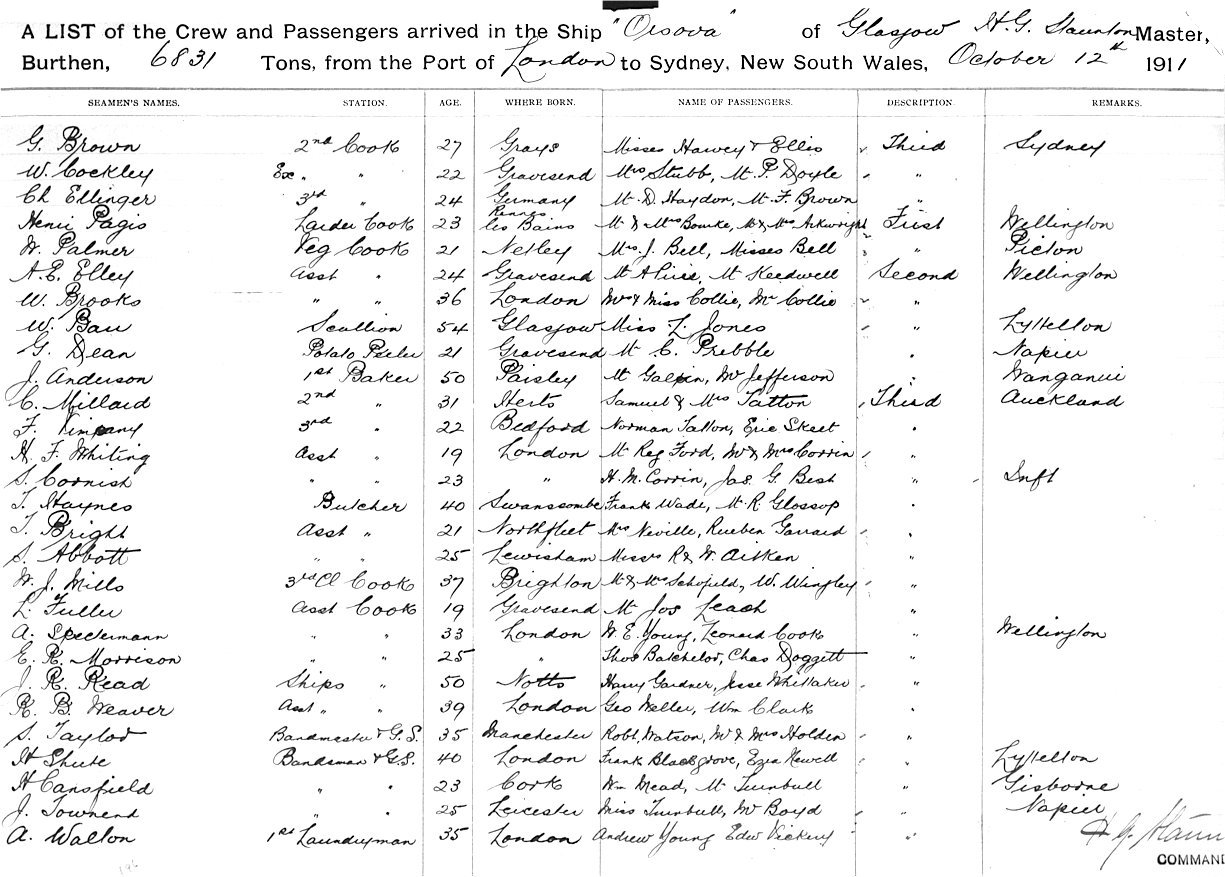 A LIST of the Crew and Passengers arrived in the Ship "Orsova" of Glasgow H. G. Staunton Master,
Burthen, 6831 Tons, from the Port of London to Sydney, New South Wales, October 12th 1911
SEAMEN'S NAMES. STATION. AGE. WHERE BORN. NAME OF PASSENGERS. DESCRIPTION. REMARKS.
G. Brown 2nd Cook 27 Grays Misses Harvey & Ellis Third Sydney
W. Cockley Ex " " 22 Gravesend Mrs Stubb, Mr P. Doyle "
Ch Ellinger 3rd " 24 Germany Mr D. Haydon, Mr F. Brown "
Henri Pagis Larder Cook 23 Rennes les Bains Mr & Mrs Bourke, Mr & Mrs Arkwright First Wellington
W. Palmer Veg Cook 21 Netley Mrs J. Bell, Misses Bell " Picton
A. E. Elley Asst " 24 Gravesend Mr A Mr Keedwell Second Wellington
W. Brooks " " 36 London Mrs & Miss Collie, Mr Collie " "
W. Scullion 54 Glasgow Miss L. Jones " Lyttelton
G. Dean Potato Peeler 21 Gravesend Mr C. Prebble " Napier
J. Anderson 1st Baker 50 Paisley Mr Galpin, Mr Jefferson " Wanganui
C. Millard 2nd " 31 Herts Samuel & Mrs Tatton Third Auckland
F. 3rd " 22 Bedford Norman Tatton, Eric Skeet " "
H. F. Whiting Asst " 19 London Mr Reg Ford, Mr & Mrs Corrin " "
S. Cornish " " 23 " H. M. Corrin, Jas. G. Best "
T. Haynes Butcher 40 Swanscombe Frank Wade, Mr R. Glossop "
T. Bright Asst " 21 Northfleet Mrs Neville, Rueben Garrard "
S. Abbott " " 25 Lewisham R & W. Aitken "
W. J. Mills 3rd Cl Cook 37 Brighton Mr & Mrs Schofield, W. Wingley "
L. Fuller Asst Cook 19 Gravesend Mr Jos Leach "
A. Speckermann " " 33 London W. E. Young, Leonard Cook " Wellington
E. R. Morrison " " 25 " Thos Batchelor, Chas Doggett "
J. R. Read Ships " 50 Notts Harry Gardner, Jesse Whittaker "
R. B. Weaver Asst " " 39 London Geo Weller, Wm Clark "
S. Taylor Bandmaster & G.S. 35 Manchester Robt. Watson, Mr & Mrs Holden "
H Shute Bandsman & G.S. 40 London Frank Blackgrove, Ezra Newell " Lyttelton
H Cansfield " " 23 Cork Wm Mead, Mr Turnbull " Gisborne
J. Townend " " 25 Leicester Miss Turnbull, Mr Boyd " Napier
A. Walton 1st Laundryman 35 London Andrew Young Edw Vickery "
H G Staun
COMMAND